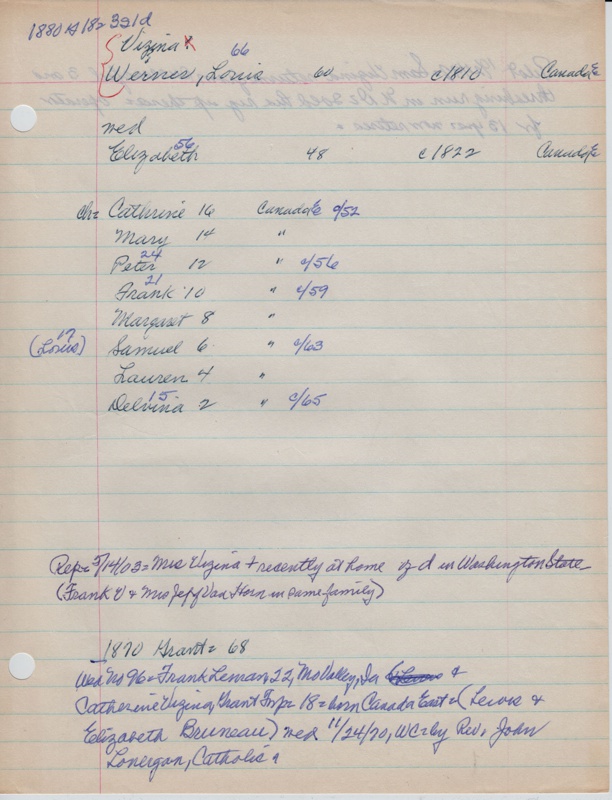 1880 A 182 391d
Vizina
66
Werner, Louis 60 c1810 Canada E
wed
56
Elizabeth 48 c1822 Canada E
ch= Cathrine 16 Canada E c/52
Mary 14 "
24
Peter 12 " c/56
21
Frank 10 " c/59
Margaret 8 "
17
(Louis) Samuel 6 " c/63
Lauren 4 "
15
Delvina 2 " c/65
Rep= 5/14/03= Mrs Vizina + recently at home of d in Washington State
(Frank V & Mrs Jeff Van Horn in same family)
1870 Grant= 68
Wed No 96= Frank Leman, 22, Mo Valley, Ia &
Catherine Vizina, Grant Twp= 18= born Canada East= (Lewis &
Elizabeth Bruneau) wed 11/24/70, WC= by Rev. John
Lonergan, Catholic